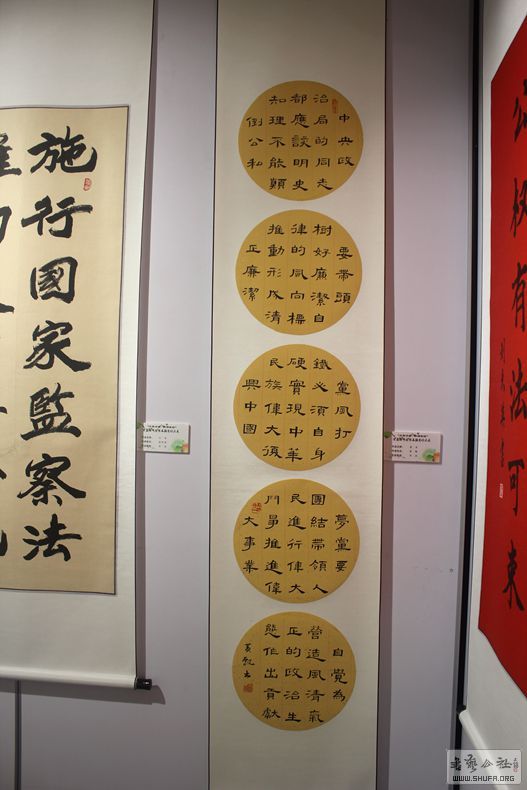 中央政
治局的同志
都應該明史
知理不能顛
倒公私
要帶頭
樹好廉潔自
律的風向標
推動形成清
正廉潔
黨風打
鐵必須自身
硬實現中華
民族偉大復
興中國
夢黨要
團結帶領人
民進行偉大
鬥爭推進偉
大事業
自覺為
營造風清氣
正的政治生
態作出貢獻
施行國家監察法
权有法可束
書藝公社
WWW.SHUFA.ORG